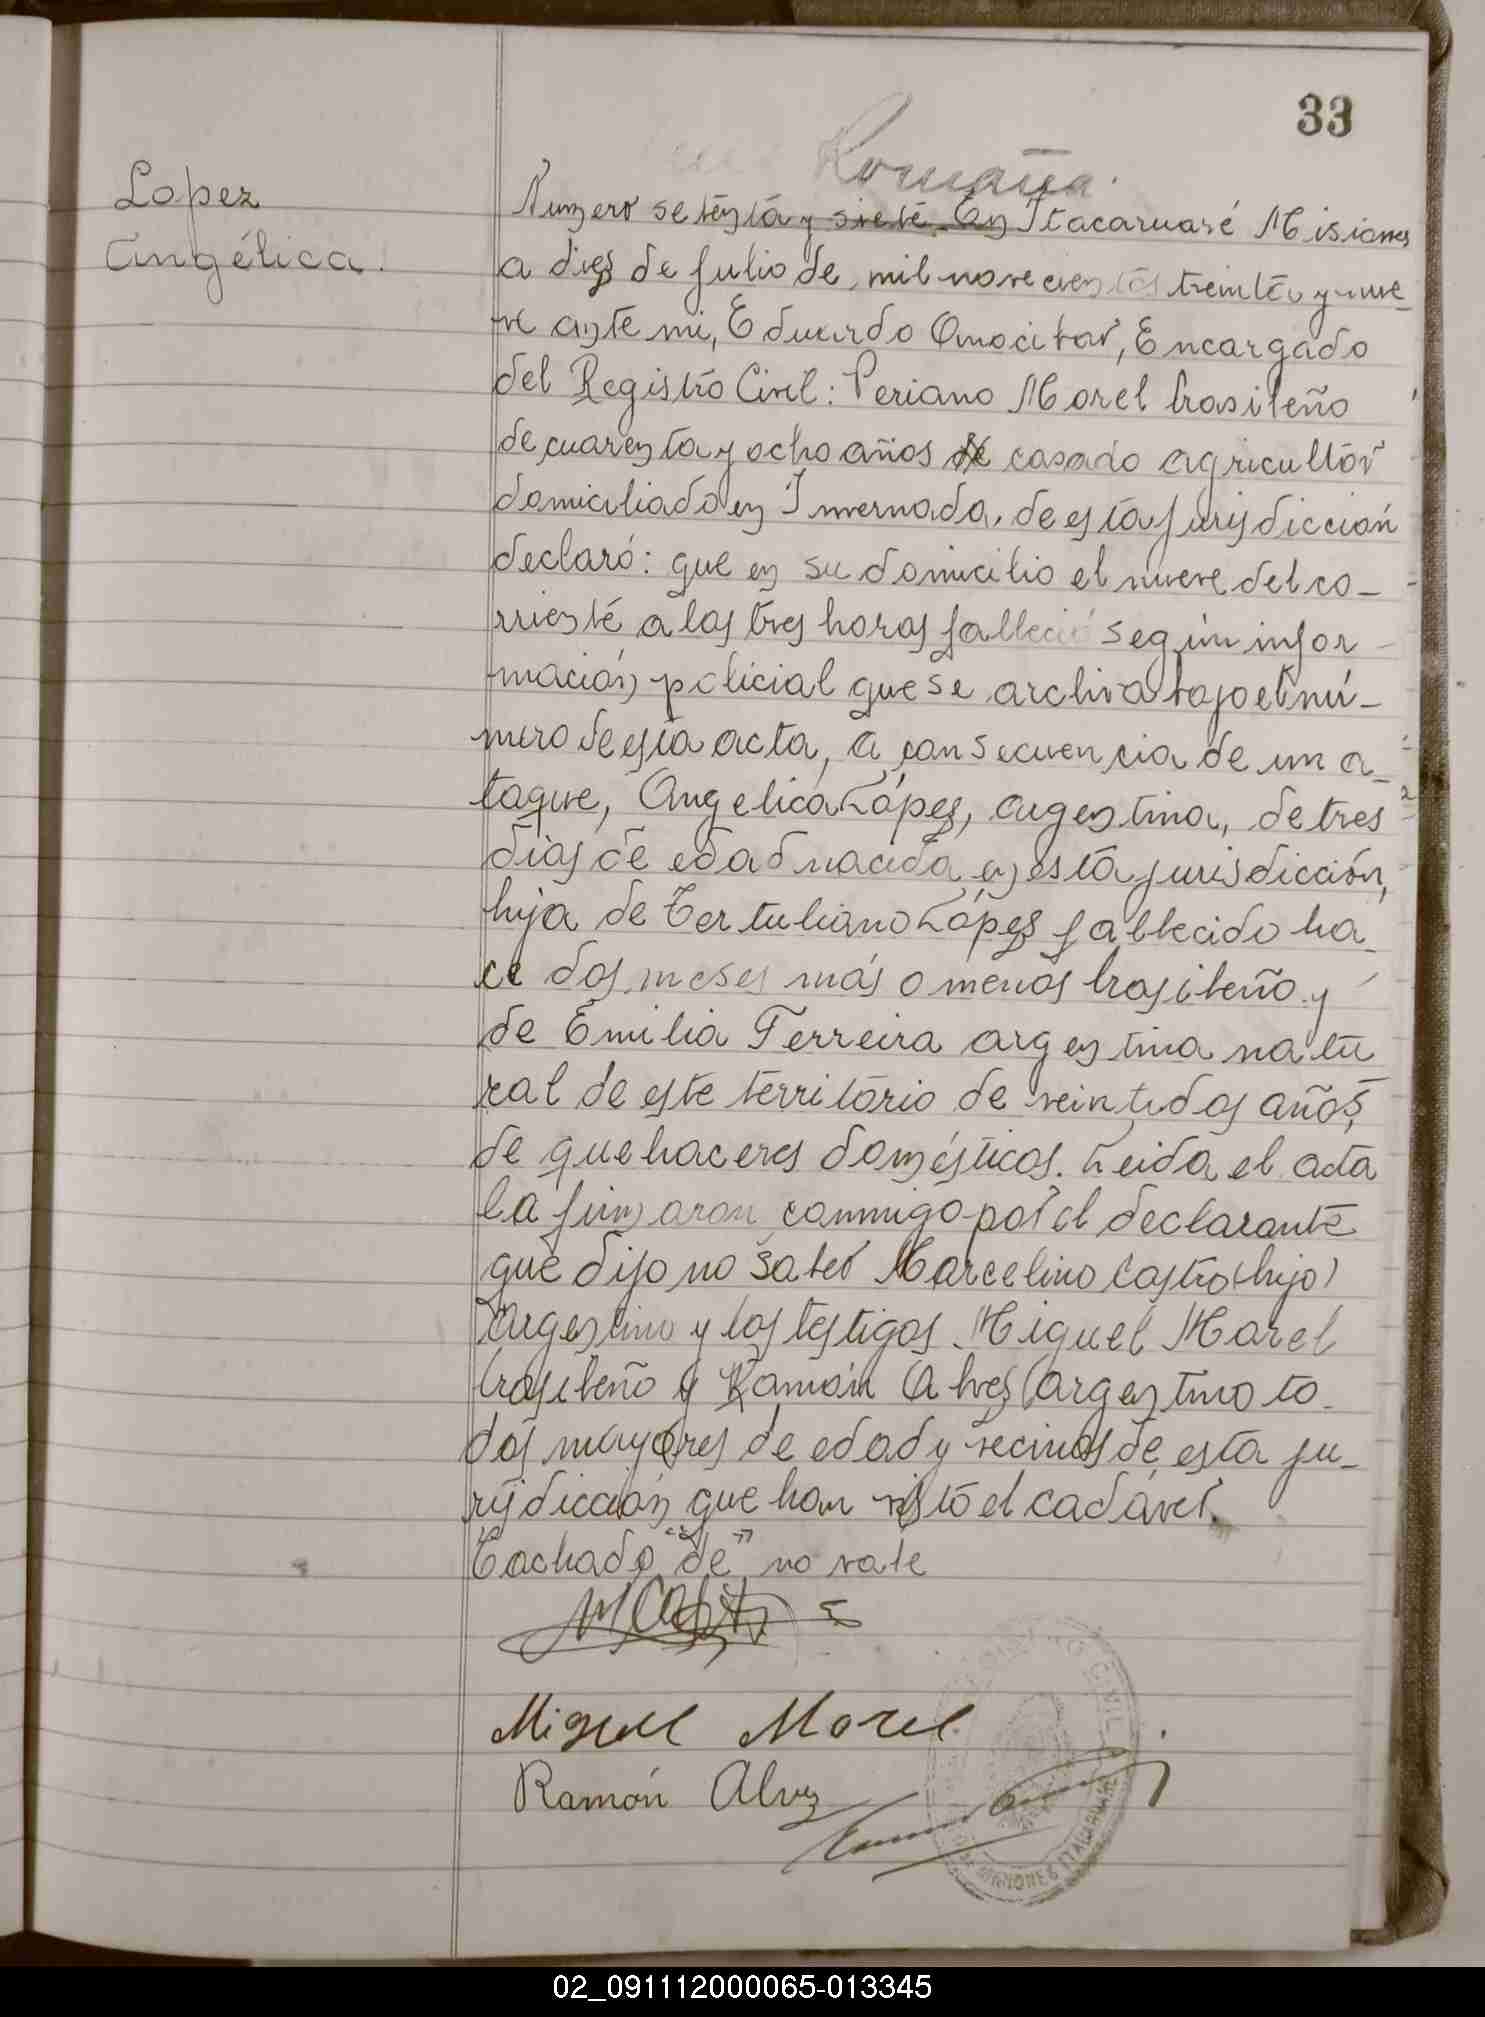 33
Lopez
Angélica.
Numero setenta y siete. En Itacaruaré Misiones
a dies de julio de mil novecientos treinta y nue-
ve ante mi, Eduardo Encargado
del Registro Civil: Periano Morel brasileño
de cuarenta y ocho años de casado agricultor
domiciliado en Invernada, de esta jurisdicción
declaró: que en su domicilio el nueve del co-
rriente a las tres horas falleció según infor-
mación policial que se archiva bajo el nú-
mero de esta acta, a consecuencia de un a-
taque, Angelica Lópes, argentina, de tres
dias de edad nacida en esta jurisdicción,
hija de Tertuliano Lópes fallecido ha-
ce dos meses más o menos brasileño y
de Emilia Ferreira argentina natu
ral de este território de veintidos años,
de quehaceres domésticos. Leida el acta
la firmaron conmigo por el declarante
que dijo no saber Marcelino Castro (hijo)
argentino y los testigos Miguel Morel
brasileño y Ramón Alves argentino to-
dos mayores de edad y vecinos de esta ju-
risdicción que han visto el cadáver.
Tachado "de" no vale
Miguel Morel
Ramón Alves
REGISTRO CIVIL
MISIONES ITACARUARE
02_091112000065-013345